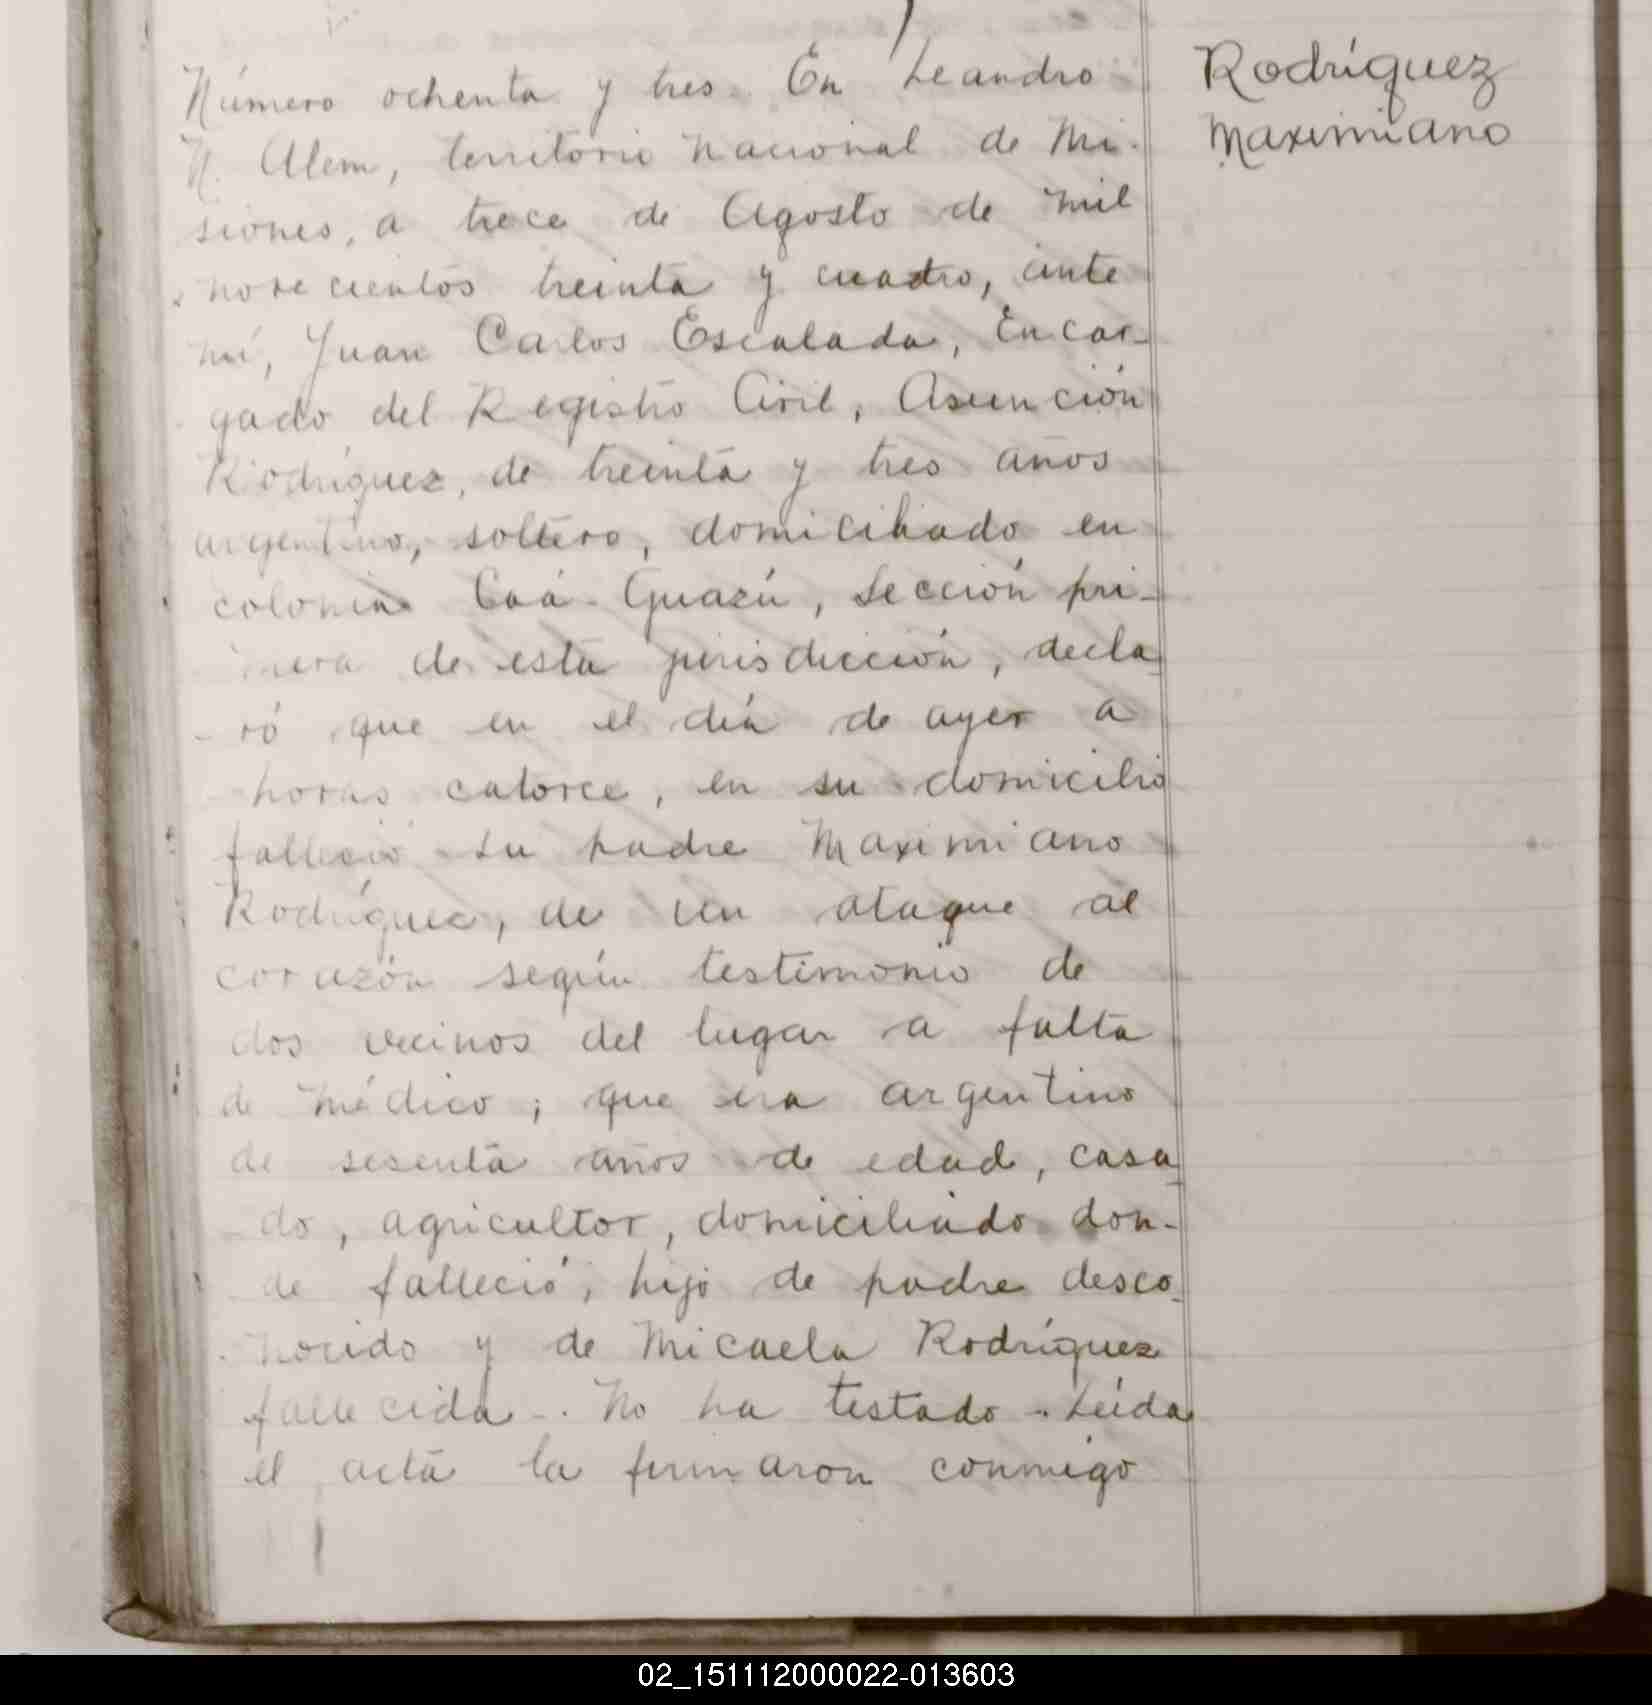 Número ochenta y tres. En Leandro
N. Alem, territorio nacional de Mi-
siones, a trece de Agosto de mil
novecientos treinta y cuatro, ante
mí, Juan Carlos Escalada, Encar-
gado del Registro Civil, Asunción
Rodríguez, de treinta y tres años
argentino, soltero, domiciliado en
colonia Caá-Guazú, Sección pri-
mera de esta jurisdicción, decla-
ró que en el día de ayer a
horas catorce, en su domicilio
falleció su padre Maximiano
Rodríguez, de un ataque al
corazón según testimonio de
dos vecinos del lugar a falta
de médico; que era argentino
de sesenta años de edad, casa-
do, agricultor, domiciliado don-
de falleció; hijo de padre desco-
nocido y de Micaela Rodríguez
fallecida-. No ha testado-. Leída
el acta la firmaron conmigo
Rodríguez
Maximiano
02_151112000022-013603